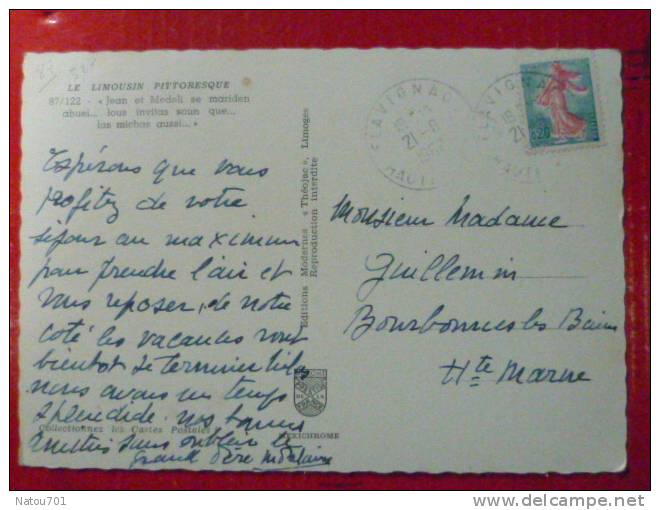 LE LIMOUSIN PITTORESQUE
87/122 - « Jean et Medeli se mariden
abuei... lous invitas soun que...
las michas aussi... »
Espérons que vous
profitez de votre
séjour au maximum
pour prendre l'air et
vous reposer, de notre
coté les vacances vont
bientot se terminer
nous avons un temps
splendide. nos bonnes
amitiés sans oublier le
grand père
Collectionnez les Cartes Postales
Editions Modernes « Théojac », Limoges
Reproduction interdite
MEXICHROME
FLAVIGNAC
21-8
HAUTE
FLAVIGNAC
21
0,20
Monsieur Madame
Guillemin
Bourbonne les Bains
Hte Marne
Natou701
delcampe.net